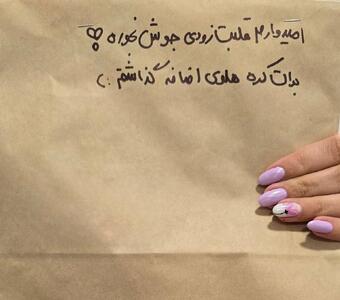 امیدوارم قلبت زودی جوش بخوره
برات کره هلوی اضافه گذاشتم :)